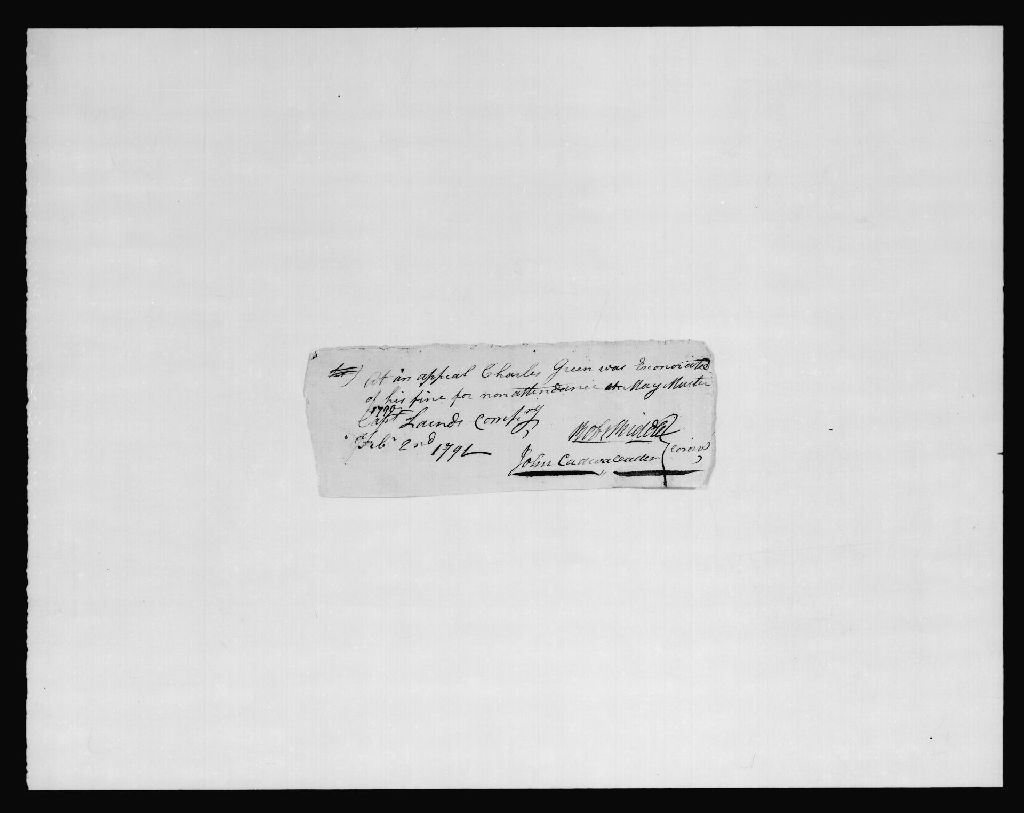 At an appeal Charles Green was Exonorated
of his fine for nonattendance at May Muster
1790
Capt Lairds Compy
Feb 2nd 1791
John Cadwalader